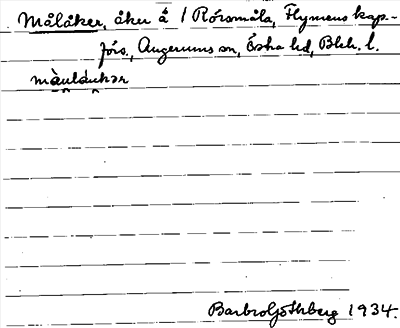 Målåker, åker å 1 Rörsmåla, Flymens kap.-
förs., Augerums sn, Östra hd, Blek. l.
màulàukər
Barbro Göthberg 1934.